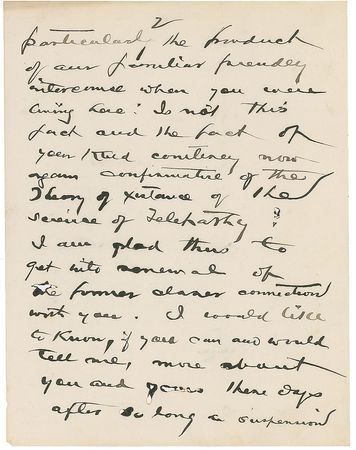 2
particularly the product
of our familiar friendly
intercourse when you were
living here! Is not this
fact and the fact of
your kind courtesy now
again confirmative of the
Theory of existance of the
science of Telepathy?
I am glad thus to
get into renewal of
the former closer connection
with you. I would like
to know, if you can and would
tell me, more about
you and yours these days
after so long a suspension